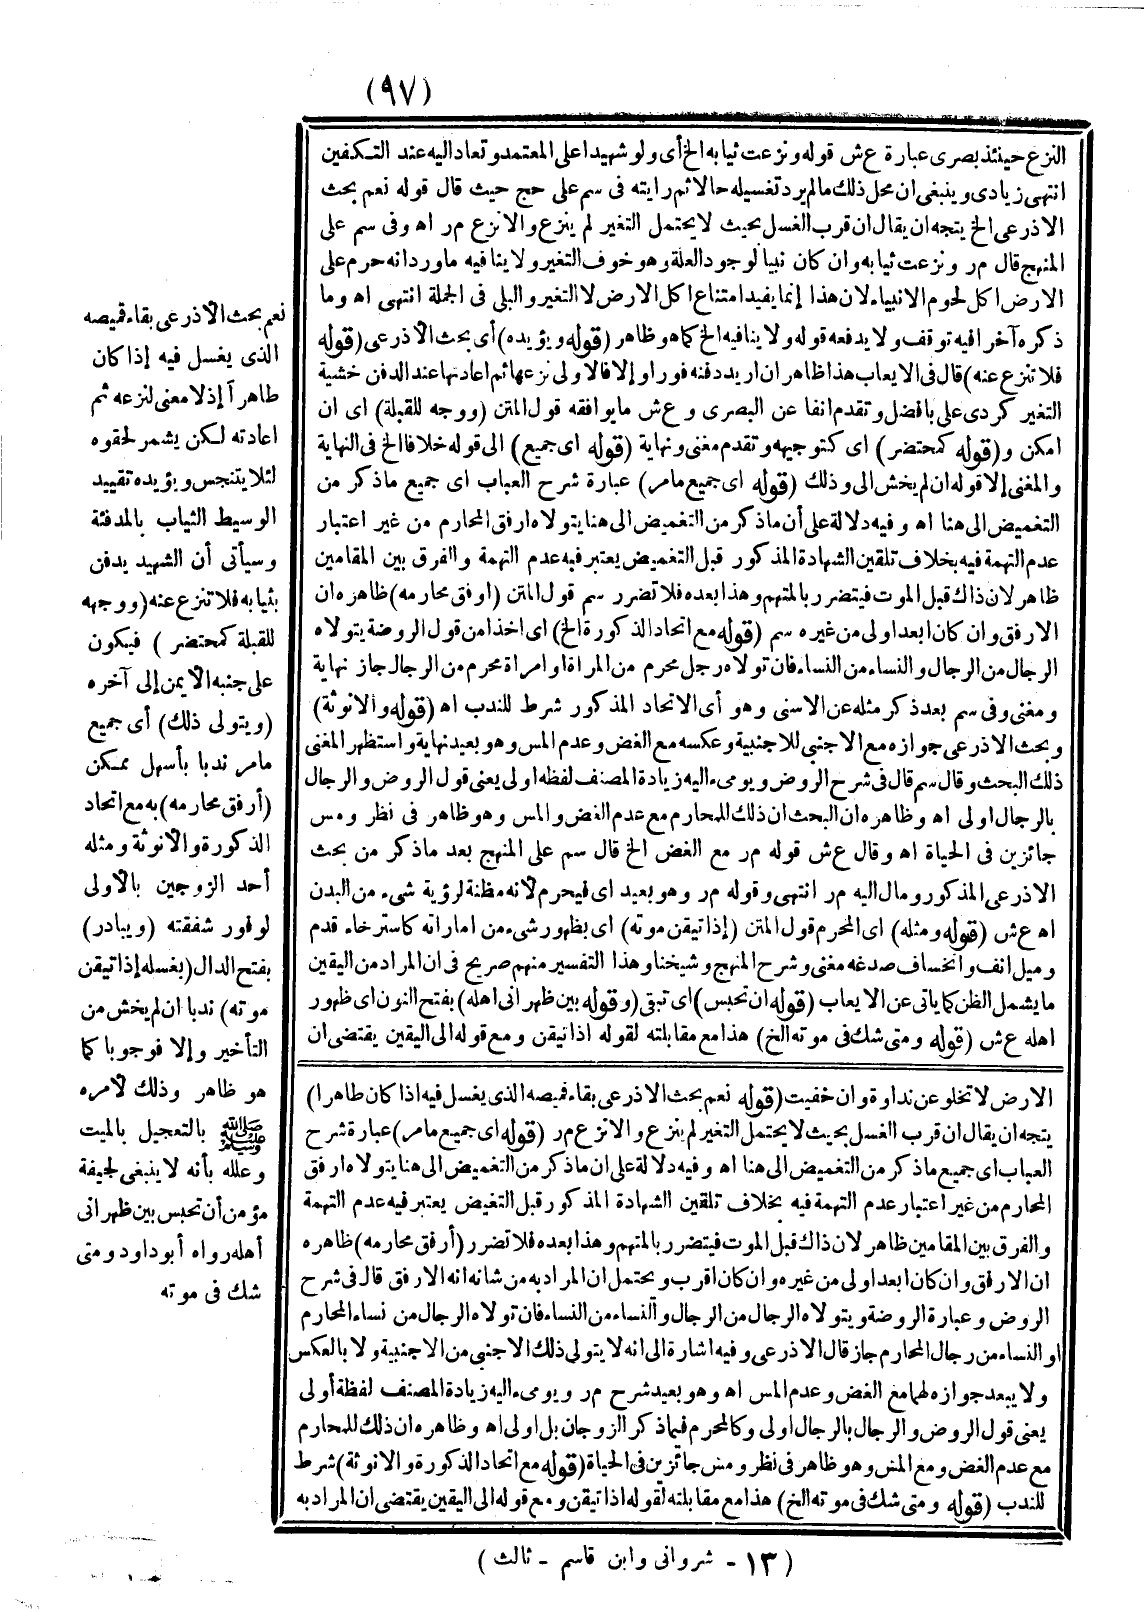 (٩٧)
النزع حينئذ بصرى عبارة ع ش قوله ونزعت ثيابه الخ أى ولو شهيدا على المعتمد وتعاد اليه عند التكفين
انتهى زيادى وينبغى ان محل ذلك مالم يرد تغسيله حالا ثم رايته فى سم على حج حيث قال قوله نعم بحث
الاذرعى الخ يتجه ان يقال ان قرب الغسل بحيث لا يحتمل التغير لم ينزع والا نزع م ر اه وفى سم على
المنهج قال م ر ونزعت ثيابه وان كان نبيا لوجود العلة وهو خوف التغير ولا ينافيه ماورد انه حرم على
الارض اكل لحوم الانبياء لان هذا إنما يفيد امتناع اكل الارض لا التغير والبلى فى الجملة انتهى اه وما
ذكره آخرا فيه توقف ولا يدفعه قوله ولا ينافيه الخ كما هو ظاهر (قوله ويؤيده) أى بحث الأذرعى (قوله
فلا تنزع عنه) قال فى الايعاب هذا ظاهر ان اريد دفنه فورا وإلا فالاولى نزعها ثم اعادتها عند الدفن خشية
التغير كردى على بافضل وتقدم انفا عن البصرى و ع ش مايوافقه قول المتن (ووجه للقبلة) اى ان
امكن و (قوله كمحتضر) اى كتوجيهه وتقدم مغنى ونهاية (قوله اى جميع) الى قوله خلافا الخ فى النهاية
والمغنى إلا قوله ان لم يخش الى وذلك (قوله اى جميع مامر) عبارة شرح العباب اى جميع ماذكر من
التغميض الى هنا اه وفيه دلالة على أن ماذكر من التغميض الى هنا يتولاه ارفق المحارم من غير اعتبار
عدم التهمة فيه بخلاف تلقين الشهادة المذكور قبل التغميض يعتبر فيه عدم التهمة والفرق بين المقامين
ظاهر لان ذاك قبل الموت فيتضرر بالمتهم وهذا بعده فلا تضرر سم قول المتن (ارفق محارمه) ظاهره ان
الارفق وان كان ابعد اولى من غيره سم (قوله مع اتحاد الذكورة الخ) اى اخذا من قول الروضة يتولاه
الرجال من الرجال والنساء من النساء فان تولاه رجل محرم من المراة او امراة محرم من الرجال جاز نهاية
ومغنى وفى سم بعد ذكر مثله عن الاسنى وهو أى الاتحاد المذكور شرط للندب اه (قوله والانوثة)
وبحث الاذرعى جوازه مع الاجنبى للاجنبية وعكسه مع الغض وعدم المس وهو بعيد نهاية واستظهر المغنى
ذلك البحث وقال سم قال فى شرح الروض ويومىء اليه زيادة المصنف لفظه اولى يعنى قول الروض والرجال
بالرجال اولى اه وظاهره ان البحث ان ذلك للمحارم مع عدم الغض والمس وهو ظاهر فى نظر ومس
جائزين فى الحياة اه وقال ع ش قوله م ر مع الغض الخ قال سم على المنهج بعد ماذكر من بحث
الاذرعى المذكور ومال اليه م ر انتهى وقوله م ر وهو بعيد اى فيحرم لانه مظنة لرؤية شىء من البدن
اه ع ش (قوله ومثله) اى المحرم قول المتن (إذا تيقن موته) اى بظهور شىء من اماراته كاسترخاء قدم
وميل انف وانخساف صدغه مغنى وشرح المنهج وشيخنا وهذا التفسير منهم صريح فى ان المراد من اليقين
ما يشمل الظن كما ياتى عن الايعاب (قوله ان تحبس) اى تبقى (وقوله بين ظهرانى اهله) بفتح النون اى ظهور
اهله ع ش (قوله ومتى شك فى موته الخ) هذا مع مقابلته لقوله اذا تيقن ومع قوله الى اليقين يقتضى ان
نعم بحث الاذرعى بقاء قميصه
الذى يغسل فيه إذا كان
طاهراً إذ لا معنى لنزعه ثم
اعادته لكن يشمر لحقوه
لئلا يتنجس ويؤيده تقييد
الوسيط الثياب بالمدفئة
وسيأتى أن الشهيد يدفن
بثيابه فلا تنزع عنه (ووجهه
للقبلة كمحتضر) فيكون
على جنبه الايمن إلى آخره
(ويتولى ذلك) أى جميع
مامر ندبا بأسهل ممكن
(أرفق محارمه) به مع اتحاد
الذكورة والأنوثة ومثله
أحد الزوجين بالاولى
لوفور شفقته (ويبادر)
بفتح الدال (بغسله إذا تيقن
موته) ندبا ان لم يخش من
التأخير وإلا فوجوبا كما
هو ظاهر وذلك لامره
ﷺ بالتعجيل بالميت
وعلله بأنه لا ينبغى لجيفة
مؤمن أن تحبس بين ظهرانى
أهله رواه أبو داود ومتى
شك فى موته
الارض لا تخلو عن نداوة وان خفيت (قوله نعم بحث الاذرعى بقاء قميصه الذى يغسل فيه اذا كان طاهرا)
يتجه ان يقال ان قرب الغسل بحيث لا يحتمل التغير لم ينزع والا نزع م ر (قوله اى جميع مامر) عبارة شرح
العباب اى جميع ماذكر من التغميض الى هنا اه وفيه دلالة على ان ماذكر من التغميض الى هنا يتولاه ارفق
المحارم من غير اعتبار عدم التهمة فيه بخلاف تلقين الشهادة المذكور قبل التغيض يعتبر فيه عدم التهمة
والفرق بين المقامين ظاهر لان ذاك قبل الموت فيتضرر بالمتهم وهذا بعده فلا تضرر (أرفق محارمه) ظاهره
ان الارفق وان كان ابعد اولى من غيره وان كان اقرب ويحتمل ان المراد به من شانه انه الارفق قال فى شرح
الروض وعبارة الروضة ويتولاه الرجال من الرجال والنساء من النساء فان تولاه الرجال من نساء المحارم
او النساء من رجال المحارم جاز قال الاذرعى وفيه اشارة الى انه لا يتولى ذلك الاجنبى من الاجنبية ولا بالعكس
ولا يبعد جوازه لهما مع الغض وعدم المس اه وهو بعيد شرح م ر ويومىء اليه زيادة المصنف لفظة أولى
يعنى قول الروض والرجال بالرجال اولى وكالمحرم فيما ذكر الزوجان بل اولى اه وظاهره ان ذلك للمحارم
مع عدم الغض ومع المس وهو ظاهر فى نظر ومس جائزين فى الحياة (قوله مع اتحاد الذكورة والانوثة) شرط
للندب (قوله ومتى شك فى موته الخ) هذا مع مقابلته لقوله اذا تيقن ومع قوله الى اليقين يقتضى ان المراد به
(١٣ - شروانى وابن قاسم - ثالث)